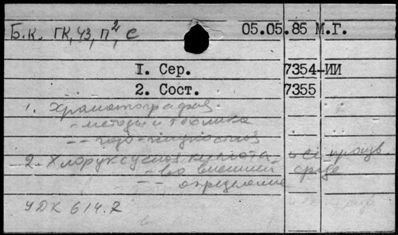 Б.к. ГК, ЧЗ, П², С 05.05.85 М.Г.
1. Сер. 7354-ИИ
2. Сост. 7355
1. Хроматография
- методы и техника
-- газо-жидкостная
2. Хлоруксусная кислота и её произв
- во внешней среде
-- определение
УДК 614.7